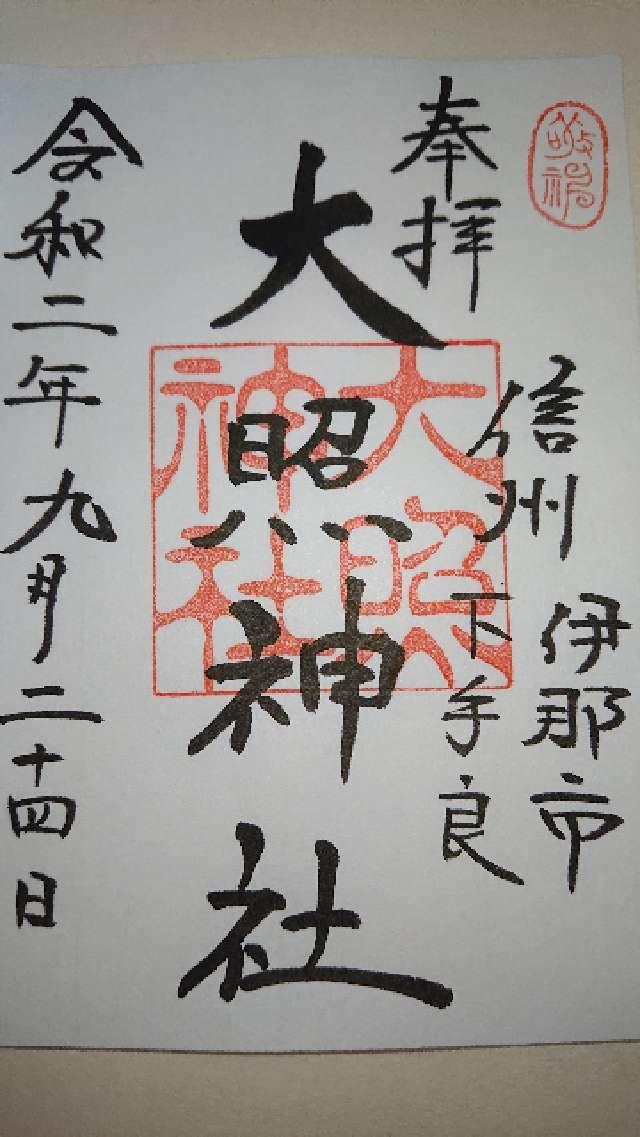 敬神
奉拝
信州 伊那市
下手良
大照神社
大照神社
令和二年九月二十四日